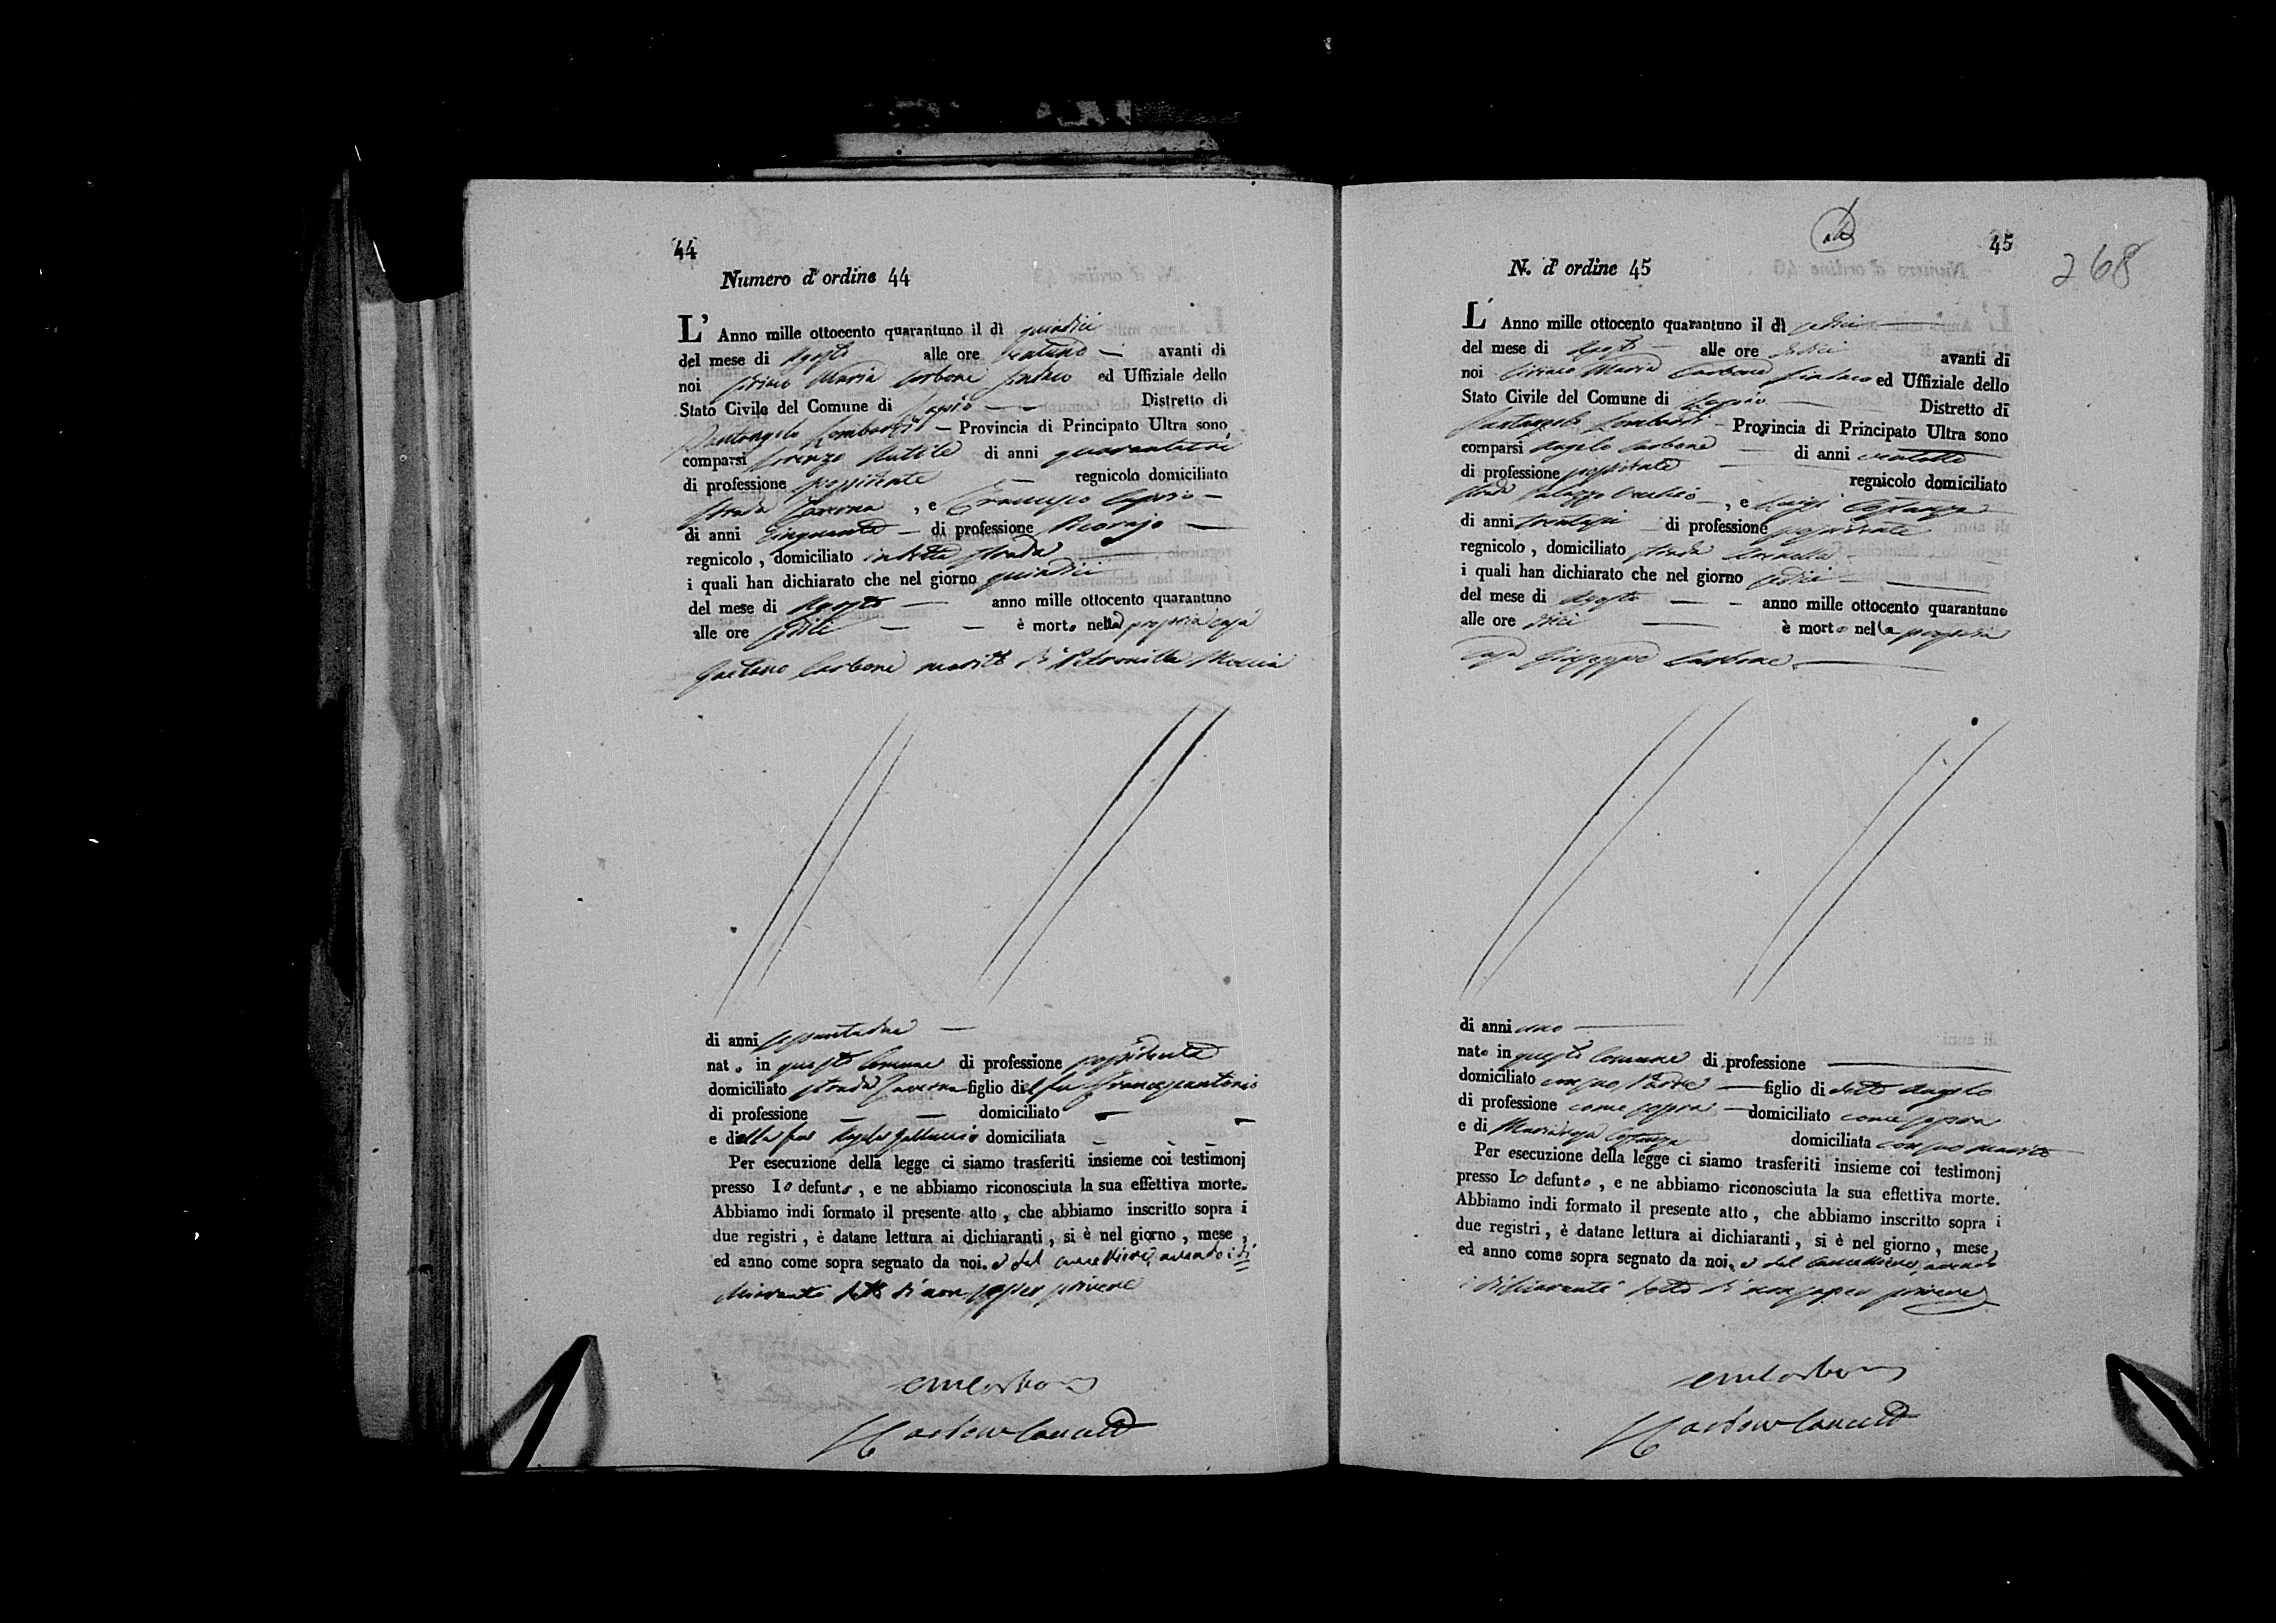 44
Numero d'ordine 44
L' Anno mille ottocento quarantuno il dì quindici
del mese di Agosto alle ore ventuno avanti di
noi Ciriaco Maria Carbone Sindaco ed Uffiziale dello
Stato Civile del Comune di Lapio Distretto di
Santangelo Lombardi Provincia di Principato Ultra sono
comparsi Lorenzo di anni quarantatre
di professione possidente regnicolo domiciliato
strada Taverna , e Francesco Caprio
di anni cinquanta di professione
regnicolo , domiciliato in detta strada
i quali han dichiarato che nel giorno quindici
del mese di Agosto anno mille ottocento quarantuno
alle ore sedici è morto nella propria casa
Gaetano Carbone marito di Petronilla Moccia
di anni sessantadue
nato in questo Comune di professione possidente
domiciliato strada Taverna figlio del fu Francescantonio
di professione domiciliato
e della fu Galluccio domiciliata
Per esecuzione della legge ci siamo trasferiti insieme coi testimonj
presso lo defunto , e ne abbiamo riconosciuta la sua effettiva morte.
Abbiamo indi formato il presente atto , che abbiamo inscritto sopra i
due registri , è datane lettura ai dichiaranti , si è nel giorno , mese ,
ed anno come sopra segnato da noi, e dal cancelliere, avendo i di
chiaranti detto di non saper scrivere
CMCarbone
45
268
N. d' ordine 45
L' Anno mille ottocento quarantuno il dì sedici
del mese di Agosto alle ore sedici avanti di
noi Ciriaco Maria Carbone Sindaco ed Uffiziale dello
Stato Civile del Comune di Lapio Distretto di
Santangelo Lombardi Provincia di Principato Ultra sono
comparsi Angelo Carbone di anni ventotto
di professione possidente regnicolo domiciliato
strada Palazzo Vecchio , e Luigi Costanza
di anni trentasei di professione possidente
regnicolo , domiciliato strada
i quali han dichiarato che nel giorno sedici
del mese di Agosto anno mille ottocento quarantuno
alle ore dieci è morto nella propria
casa Giuseppe Carbone
di anni uno
nato in questo Comune di professione
domiciliato con suo Padre figlio di detto Angelo
di professione come sopra domiciliato come sopra
e di Mariarosa Costanza domiciliata con suo marito
Per esecuzione della legge ci siamo trasferiti insieme coi testimonj
presso lo defunto , e ne abbiamo riconosciuta la sua effettiva morte.
Abbiamo indi formato il presente atto , che abbiamo inscritto sopra i
due registri , è datane lettura ai dichiaranti , si è nel giorno , mese,
ed anno come sopra segnato da noi, e dal cancelliere, avendo
i dichiaranti detto di non saper scrivere
CMCarbone